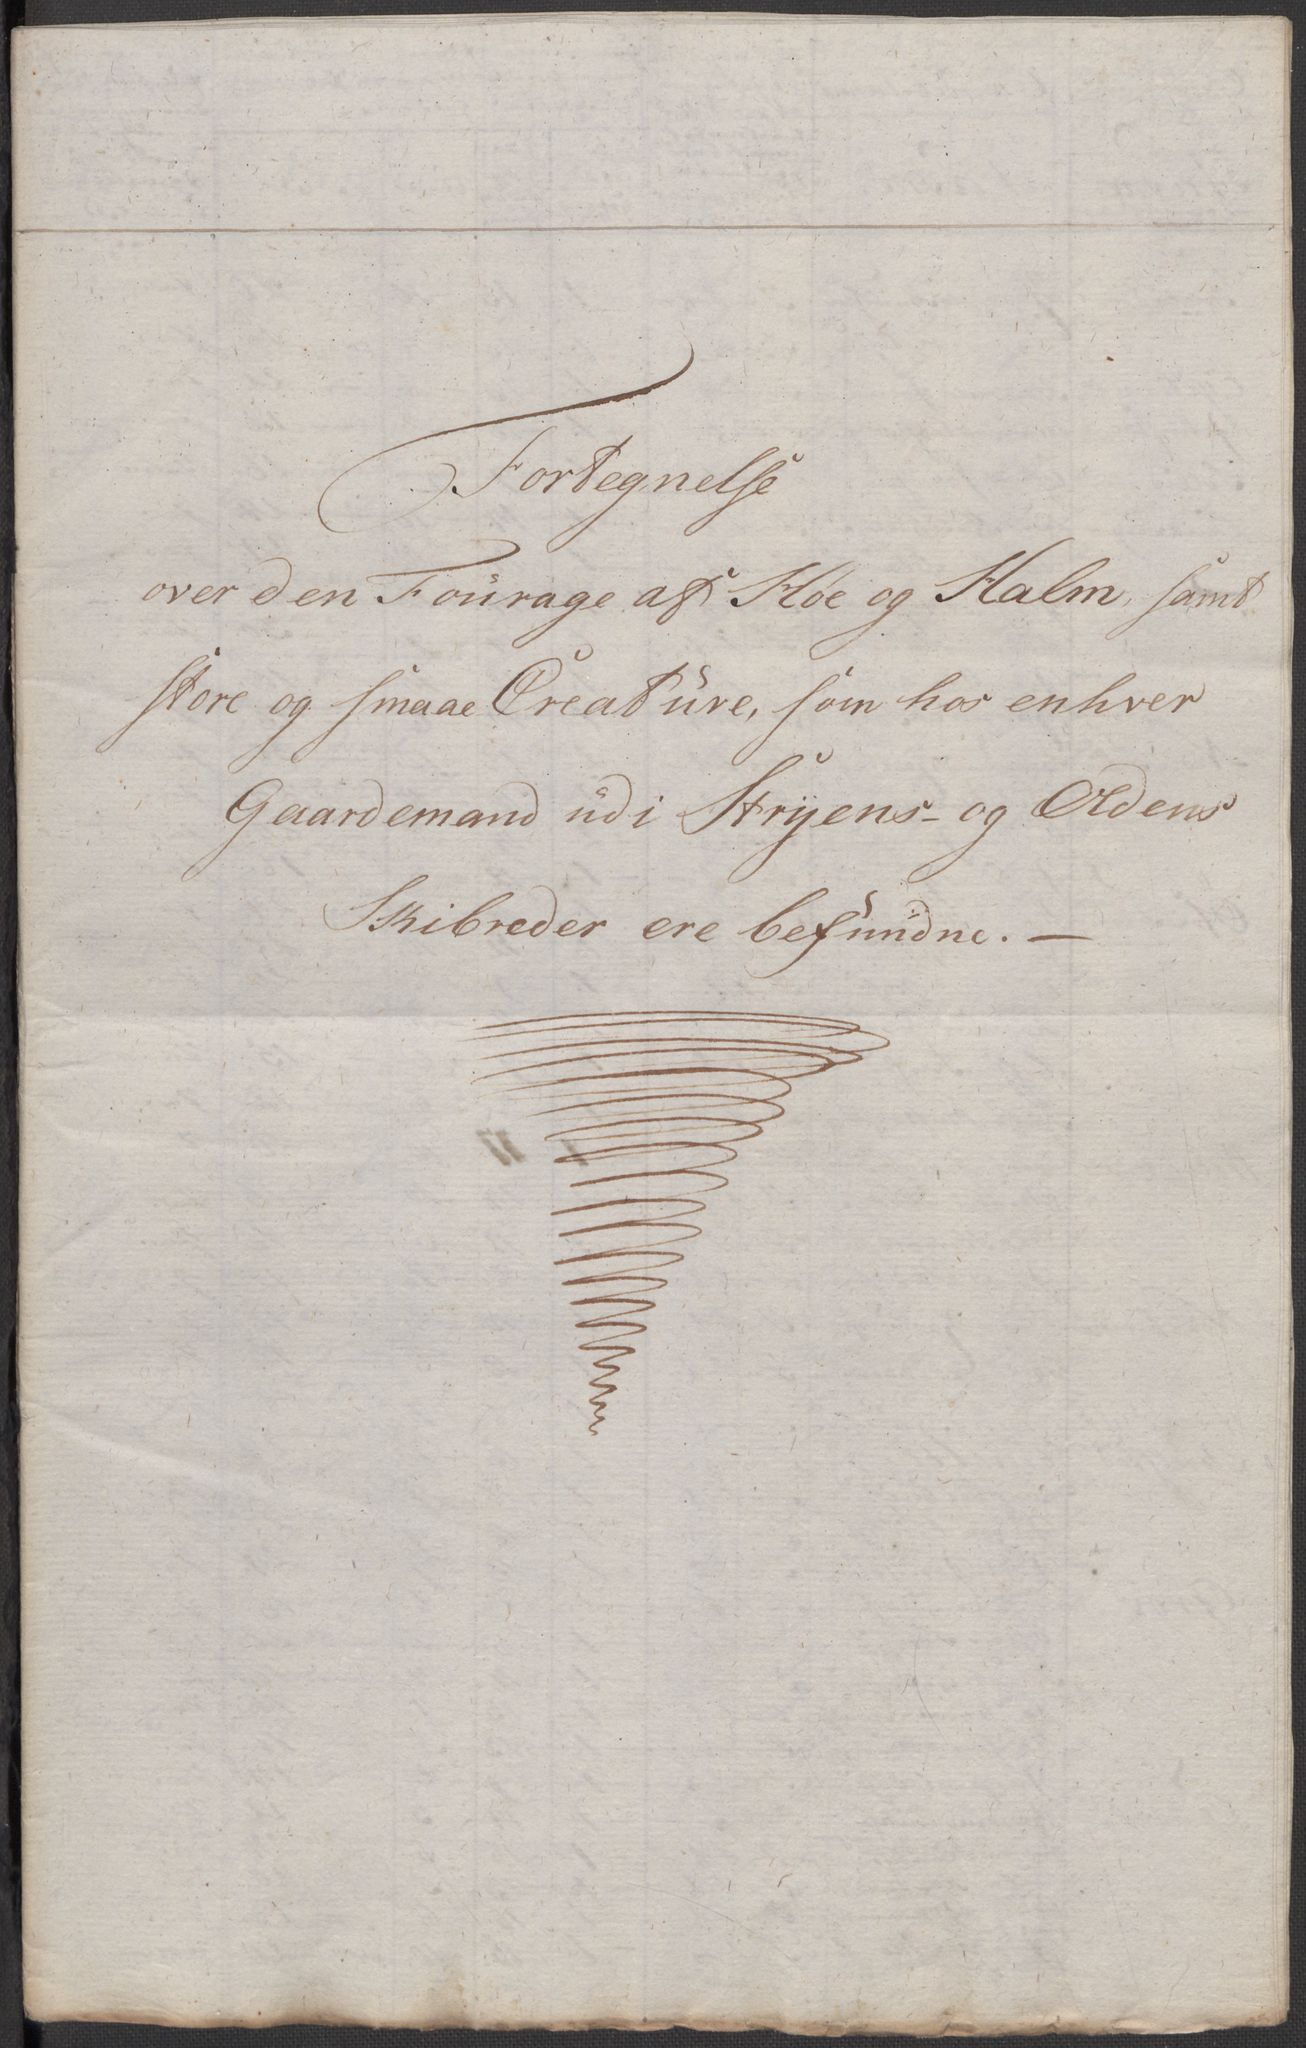 Fortegnelse
over den Fourage af Høe og Halm, samt
store og smaae Creature, som hos enhver
Gaardemand udi Stryens- og Oldens
Skibreder ere befundne. —